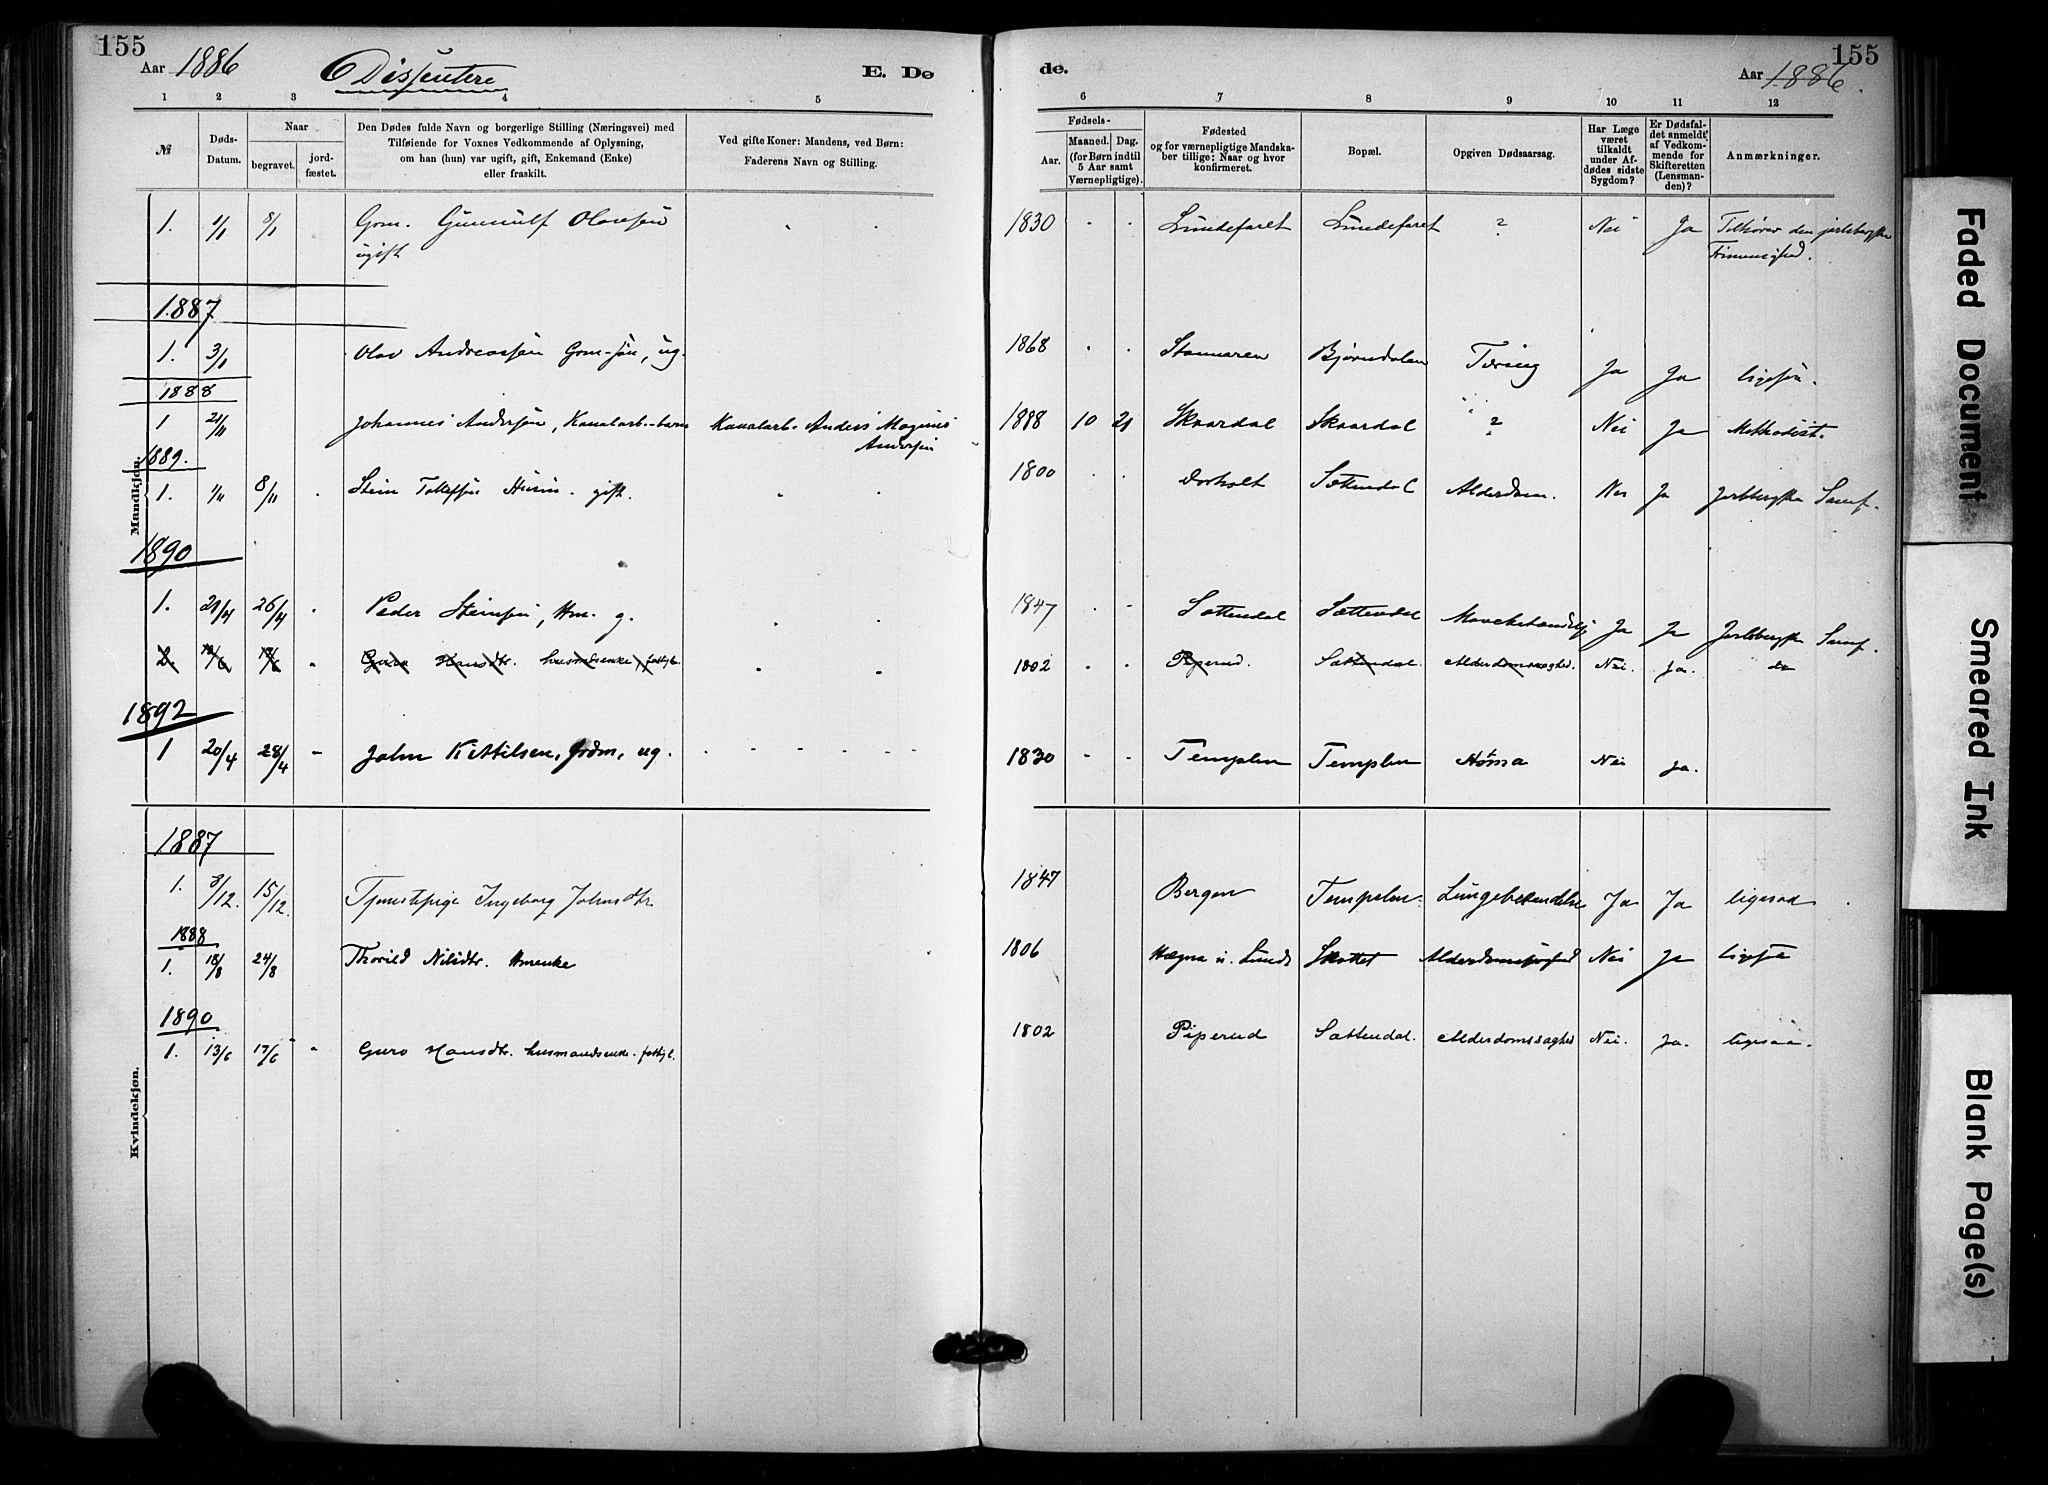 155 155
Aar 1886 Dissentere E. Dø de. Aar 1886.
1 2 3 4 5 6 7 8 9 10 11 12
№
Døds-
Datum.
Naar
begravet.
jord-
fæstet.
Den Dødes fulde Navn og borgerlige Stilling (Næringsvei) med
Tilføiende for Voxnes Vedkommende af Oplysning,
om han (hun) var ugift, gift, Enkemand (Enke)
eller fraskilt.
Ved gifte Koner: Mandens, ved Børn:
Faderens Navn og Stilling.
Fødsels-
Aar.
Maaned. Dag.
(for Børn indtil
5 Aar samt
Værnepligtige).
Fødested
og for værnepligtige Mandska-
ber tillige: Naar og hvor
konfirmeret.
Bopæl.
Opgiven Dødsaarsag.
Har Læge
været
tilkaldt
under Af-
dødes sidste
Sygdom?
Er Dødsfal-
det anmeldt
af Vedkom-
mende for
Skifteretten
(Lensman-
den)?
Anmærkninger.
Mandkjøn.
1. 1/1 8/1 Grm. Gunnulf Olavsøn 1830 Lundefaret Lundefaret ? Nei Ja Tilhører den jarlsbergske
ugift Frimenighed.
1887
1. 3/1 Olav Andreassøn Grm-søn, ug. 1868 Stannaren Bjørndalen Tæring Ja Ja ligesaa.
1888
1 21/11 Johannes Andersøn, Kanalarb.-barn Kanalarb. Anders Magnus 1888 10 21 Skaardal Skaardal ? Nei Ja Methodist.
Andersøn
1889.
1. 1/11 8/11 " Stein Tollefsøn Husm. gift. 1800 Dorholt Sættendal Alderdom. Nei Ja Jarlsbergske Samf.
1890
1. 21/4 26/4 " Peder Steinsøn, Hm. g. 1847 Sættendal Sættendal Mavebetændelse Ja Ja Jarlsbergske Samf.
2. 13/6 17/6 " Guro Hansdtr. husmandsenke, fattigl. 1802 Piperud. Sættendal. Alderdomssvaghed. Nei. Ja. do
1892
1 20/4 28/4 " John Kittilsen, Grdm, ug. 1830 Templen Templen Nei Ja.
Kvindekjøn.
1887
1. 8/12. 15/12. Tjenestepige Ingeborg Johnsdtr. 1847 Bergen Tempelen. Lungebetændelse Ja Ja ligesaa
1888
1. 18/8 24/8 Thorild Nilsdtr. Hmenke 1806 Hægna i Lunde Skottet Alderdomssvaghed Nei Ja ligesaa
1890
1. 13/6 17/6 " Guro Hansdtr. husmandsenke. fattigl. 1802 Piperud Sættendal. Alderdomssvaghed Nei. Ja. ligesaa.
Faded Document
Smeared Ink
Blank Page(s)